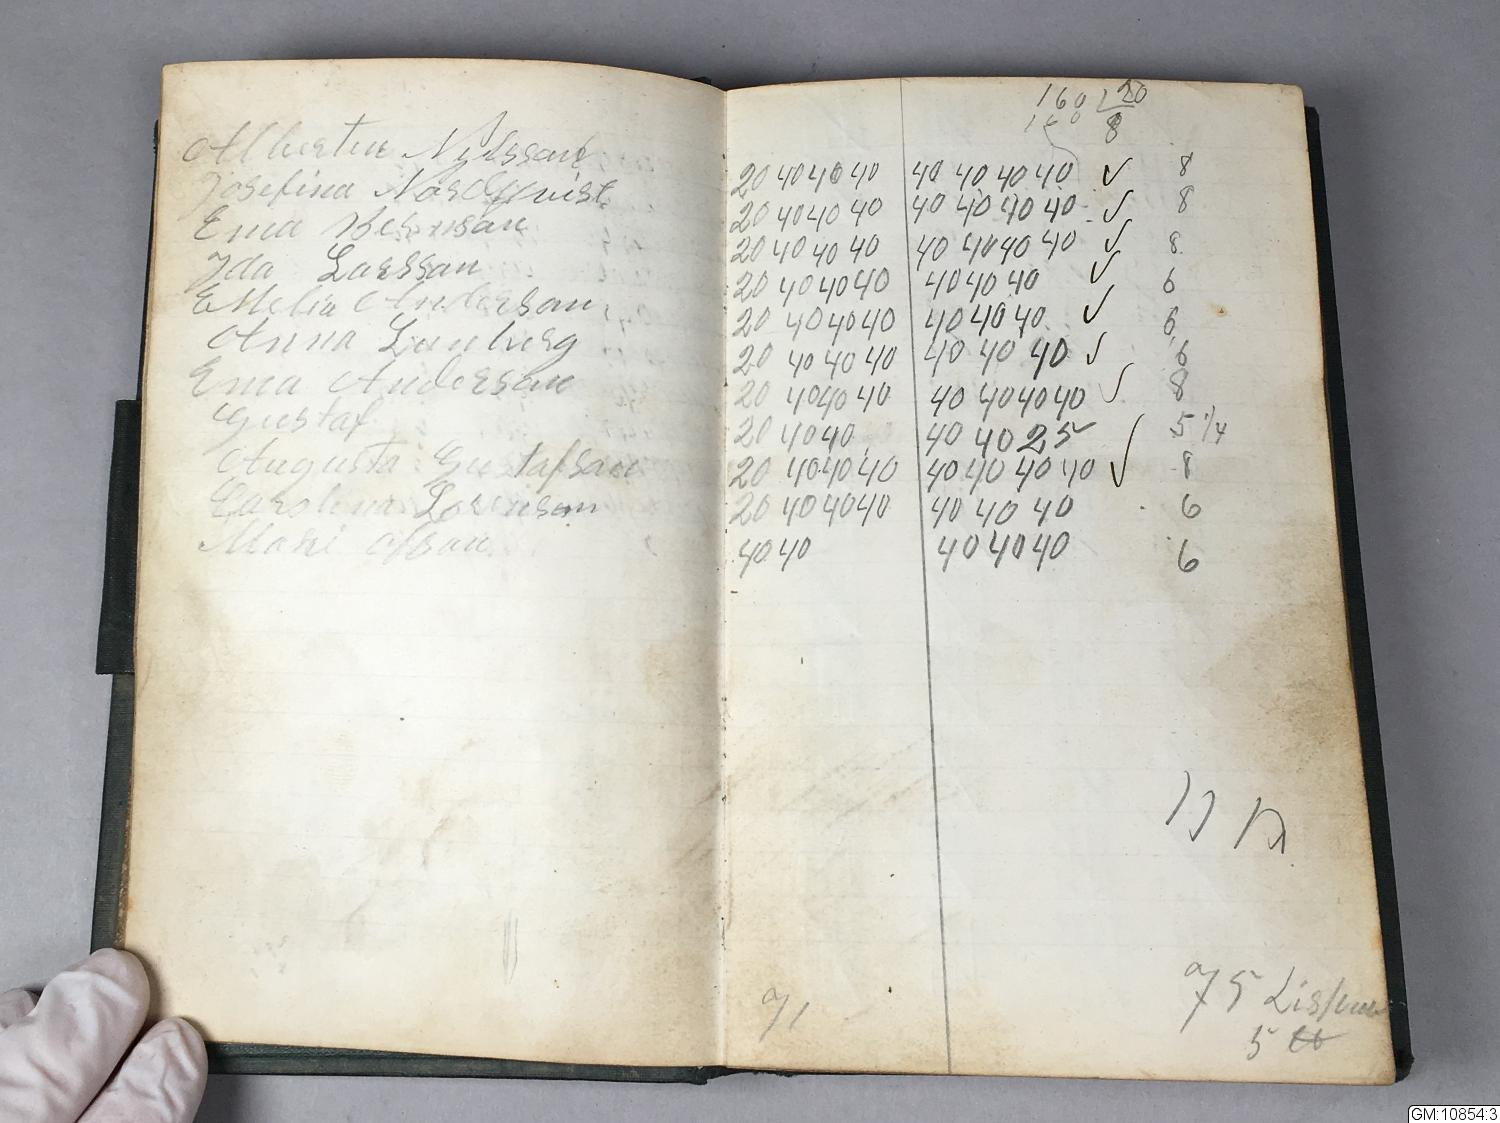 160 20
160 8
Albertin Nylssan 20 40 40 40 40 40 40 40 ✓ 8
Josefina Nordqvist 20 40 40 40 40 40 40 40 ✓ 8
Ema Bernsan 20 40 40 40 40 40 40 40 ✓ 8
Ida Larssan 20 40 40 40 40 40 40 ✓ 6
Emelia Andersan 20 40 40 40 40 40 40 ✓ 6
Anna Lunberg 20 40 40 40 40 40 40 ✓ 6
Ema Andersan 20 40 40 40 40 40 40 40 ✓ 8
Gustaf 20 40 40 40 40 25 ✓ 5 1/4
Augusta Gustafsan 20 40 40 40 40 40 40 40 ✓ 8
Carolina 20 40 40 40 40 40 40 6
Mari Olsan 40 40 40 40 40 6
75
5
GM:10854:3